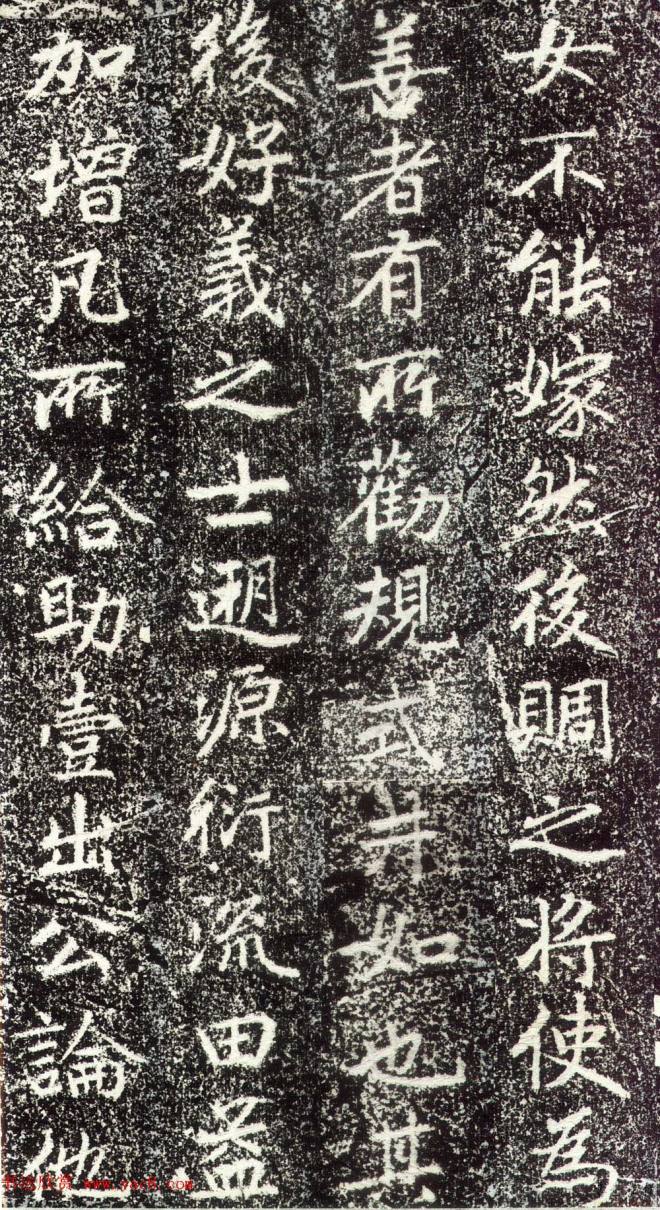 女不能嫁然後賙之將使為
善者有所勸規式井如也其
後好義之士遡源衍流田益
加增凡所給助壹出公論他
书法欣赏 www.yac8.com